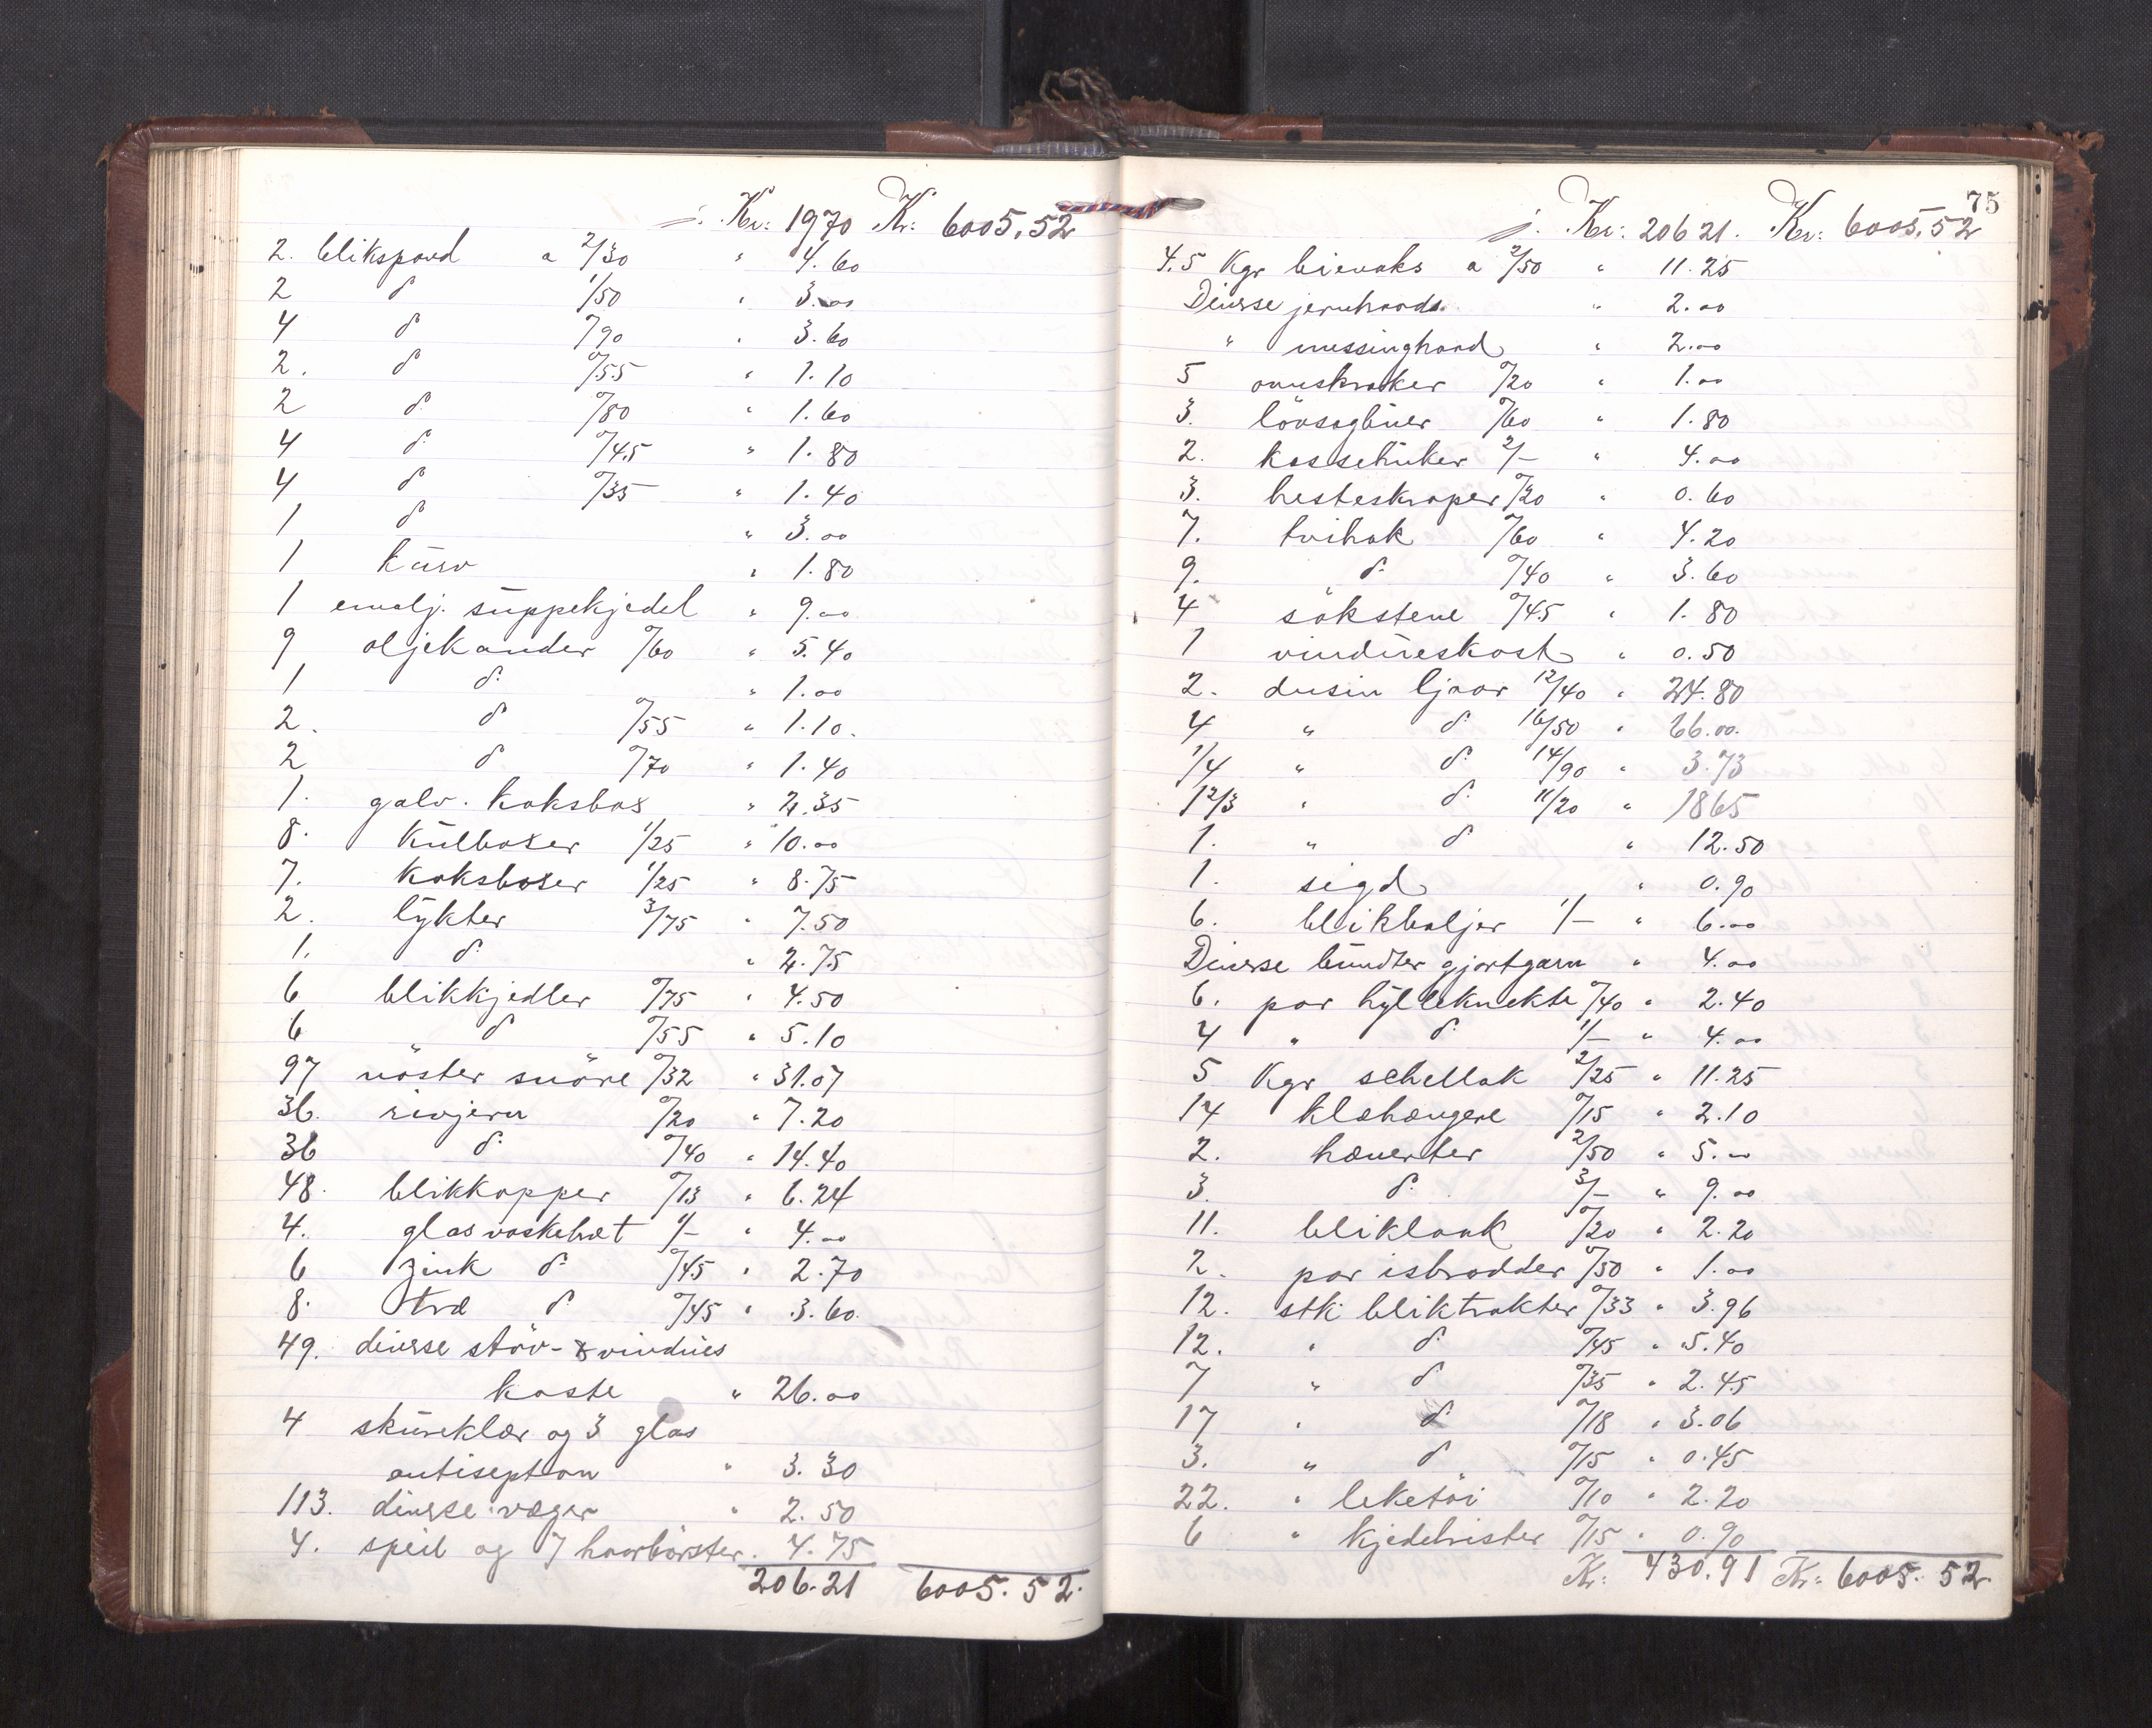 Kr: 1970 Kr: 6005.52
2. blikspand a 2/30 " 4.60
2 d 1/50 " 3.00
4 d 0/90 " 3.60
2. d 0/55 " 1.10
2 d 0/80 " 1.60
4 d 0/45 " 1.80
4 d 0/35 " 1.40
1 d " 3.00
1 kurv " 1.80
1 emalj. suppekjedel " 9.00
9 oljekander 0/60 " 5.40
1 d " 1.00
2. d 0/55 " 1.10.
2 d 0/70 " 1.40
1. galv. koksbox " 2.35
8. kulboxer 1/25 " 10.00
7. koksboxer 1/25 " 8.75
2. lykter 3/75 " 7.50
1. d " 2.75
6 blikkjedler 0/75 " 4.50
6 " d 0/55 " 5.10
97 nöster snöre 0/32 " 31.07
36. rivjern 0/20 " 7.20
36 d 0/40 " 14.40
48. blikkopper 0/13 " 6.24
4. glas vaskebræt 1/- " 4.00
6 zink d 0/45 " 2.70
8. træ d 0/45 " 3.60.
49. diverse stöv- & vindues
koste " 26.00
4 skureklær og 3 glas
antisepton " 3.30
113. diverse væger " 2.50
4. speil og 7 haarbörster. 4.75
206.21 6005.52.
75
Kr: 206 21. Kr: 6005.52
4.5 Kgr bievaks a 2/50 " 11.25
Diverse jerntraad " 2.00
" messingtraad " 2.00
5 ovnskraker 0/20 " 1.00
3. lövsagbuer 0/60 " 1.80
2. 2/- " 4.00
3. hesteskraper 0/20 " 0.60
7. tvihak 0/60 " 4.20
9. " d 0/40 " 3.60
4 söksten 0/45 " 1.80
1 vindueskost " 0.50
2. dusin ljaar 12/40 " 24.80
4 " d 16/50 " 66.00.
1/4 " d 14/90 " 3.73
1 2/3 " d 11/20 " 1865
1. " d " 12.50
1. sigd " 0.90
6. blikbaljer 1/- " 6.00
Diverse bundter gjortgarn " 4.00
6. par hylleknekte 0/40 " 2.40
4 " d 1/- " 4.00
5 Kgr schellak 2/25 " 11.25
14 klæhængere 0/15 " 2.10
2. hæverter 2/50 " 5.00
3. d 3/- " 9.00
11. bliklaak 0/20 " 2.20
2. par isbrodder 0/50 " 1.00
12. stk. bliktrakter 0/33 " 3.96
12. " d 0/45 " 5.40
7 " d 0/35 " 2.45
17 " d 0/18 " 3.06
3. " d 0/15 " 0.45
22. " leketöi 0/10 " 2.20
6 " kjedelrister 0/15 " 0.90
Kr: 430.91 Kr: 6005.52